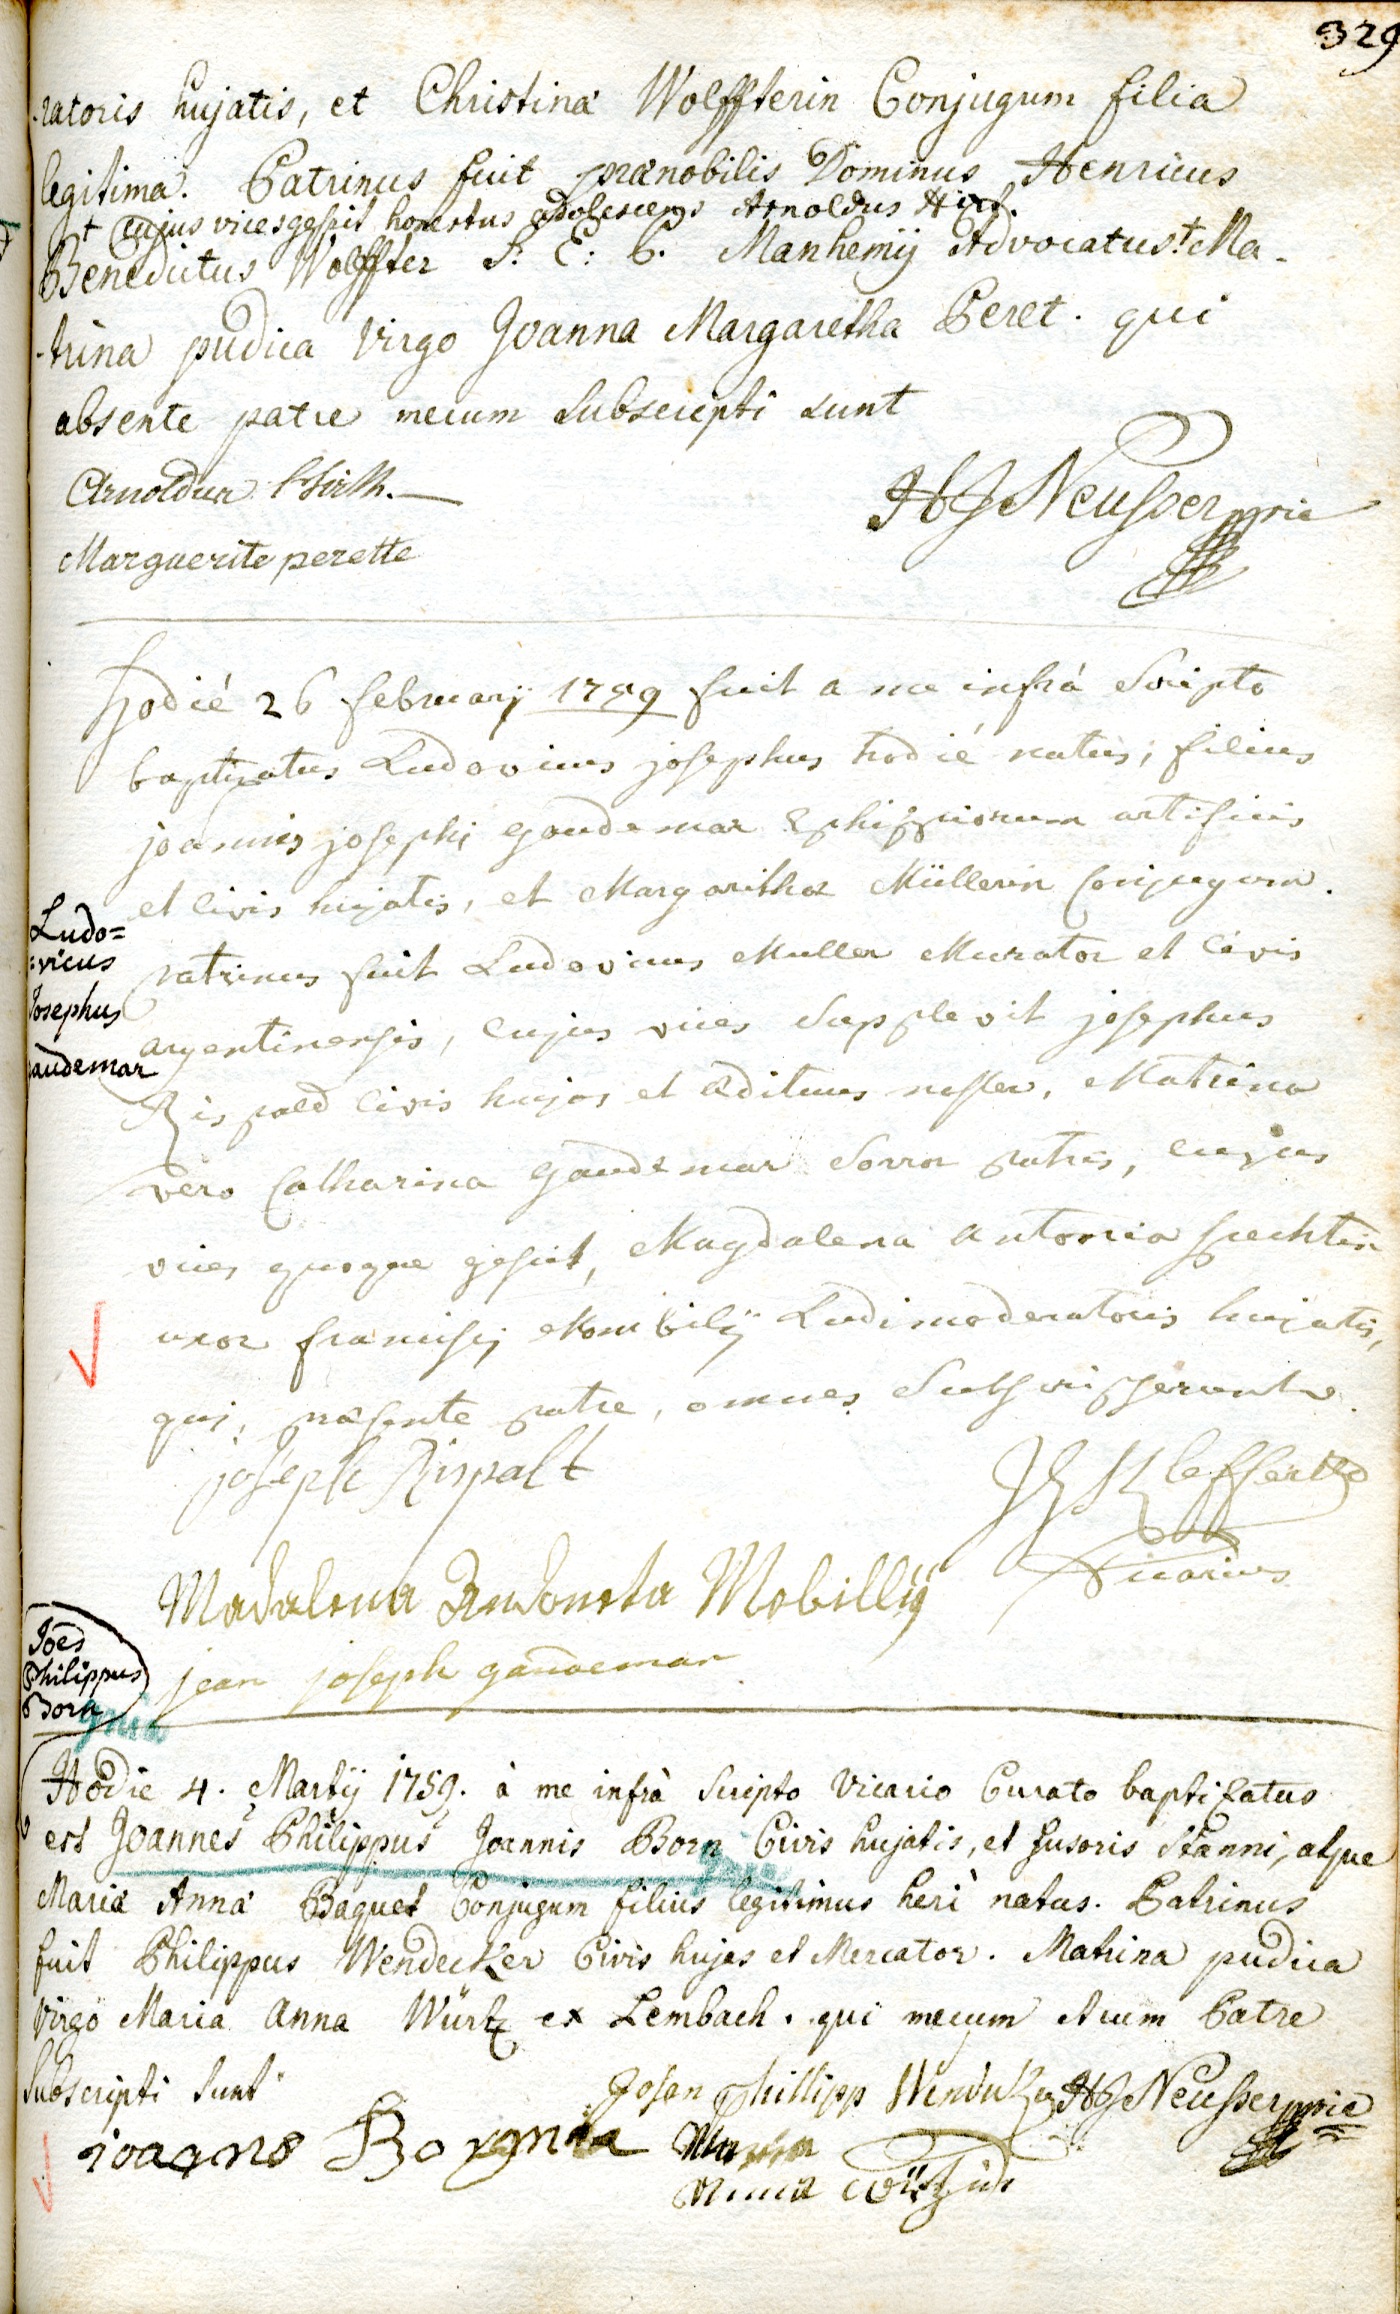 329
-ratoris hujatis, et Christinâ Wolffterin Conjugum filia
legitima. Patrinus fuit prænobilis Dominus Henricus
† cujus vices gessit honestus adolescens Arnoldus Hirt.
Benedictus Wolffter S: E: P. Manhemÿ Advocatus.† Ma-
-trina pudica Virgo Joanna Margaretha Peret. qui
absente patre mecum subscripti sunt
Arnoldus Hirth.
HJ Neusser mpria
Marguerite perette
hodié 26 februarij 1759 fuit a me infrá Scripto
baptizatus Ludovicus josephus hodié natus, filius
joannis josephi gaudemar Ephippiorum artificis
et Civis hujatis, et Margarithæ Müllerin Conjugum.
Ludo=
=vicus
Josephus
audemar
patrinus fuit Ludovicus Muller Murator et Civis
argentinensis, Cujus vices Supplevit josephus
Rispald Civis hujas et Ædituus noster, Matrina
vero Catharina gaudemar Soror patris, cujus
vices quoque gessit, Magdalena antonia
uxor francisci Mombilÿ Ludimoderatoris hujatis,
qui, præsente patre, omnes Subscripserunt.
joseph Rispalt
Vicarius
Madalena Andoneta Mobillÿ
jean joseph gaudemar
Joes
Philippus
Born
gnia
Hodie 4. Martÿ 1759. à me infrà Scripto Vicario Curato baptisatus
est Joannes Philippus Joannis Born Civis hujatis, et fusoris Stanni, atque
Mariæ Annâ Baquet Conjugum filius legitimus heri natus. Patrinus
fuit Philippus Wendecker Civis hujas et Mercator. Matrina pudica
Virgo Maria Anna Würtz ex Lembach. qui mecum et cum Patre
Subscripti Sunt
Johan Phillipp Wendecker HJ Neusser mpria
joagnes Borgnia
Maria